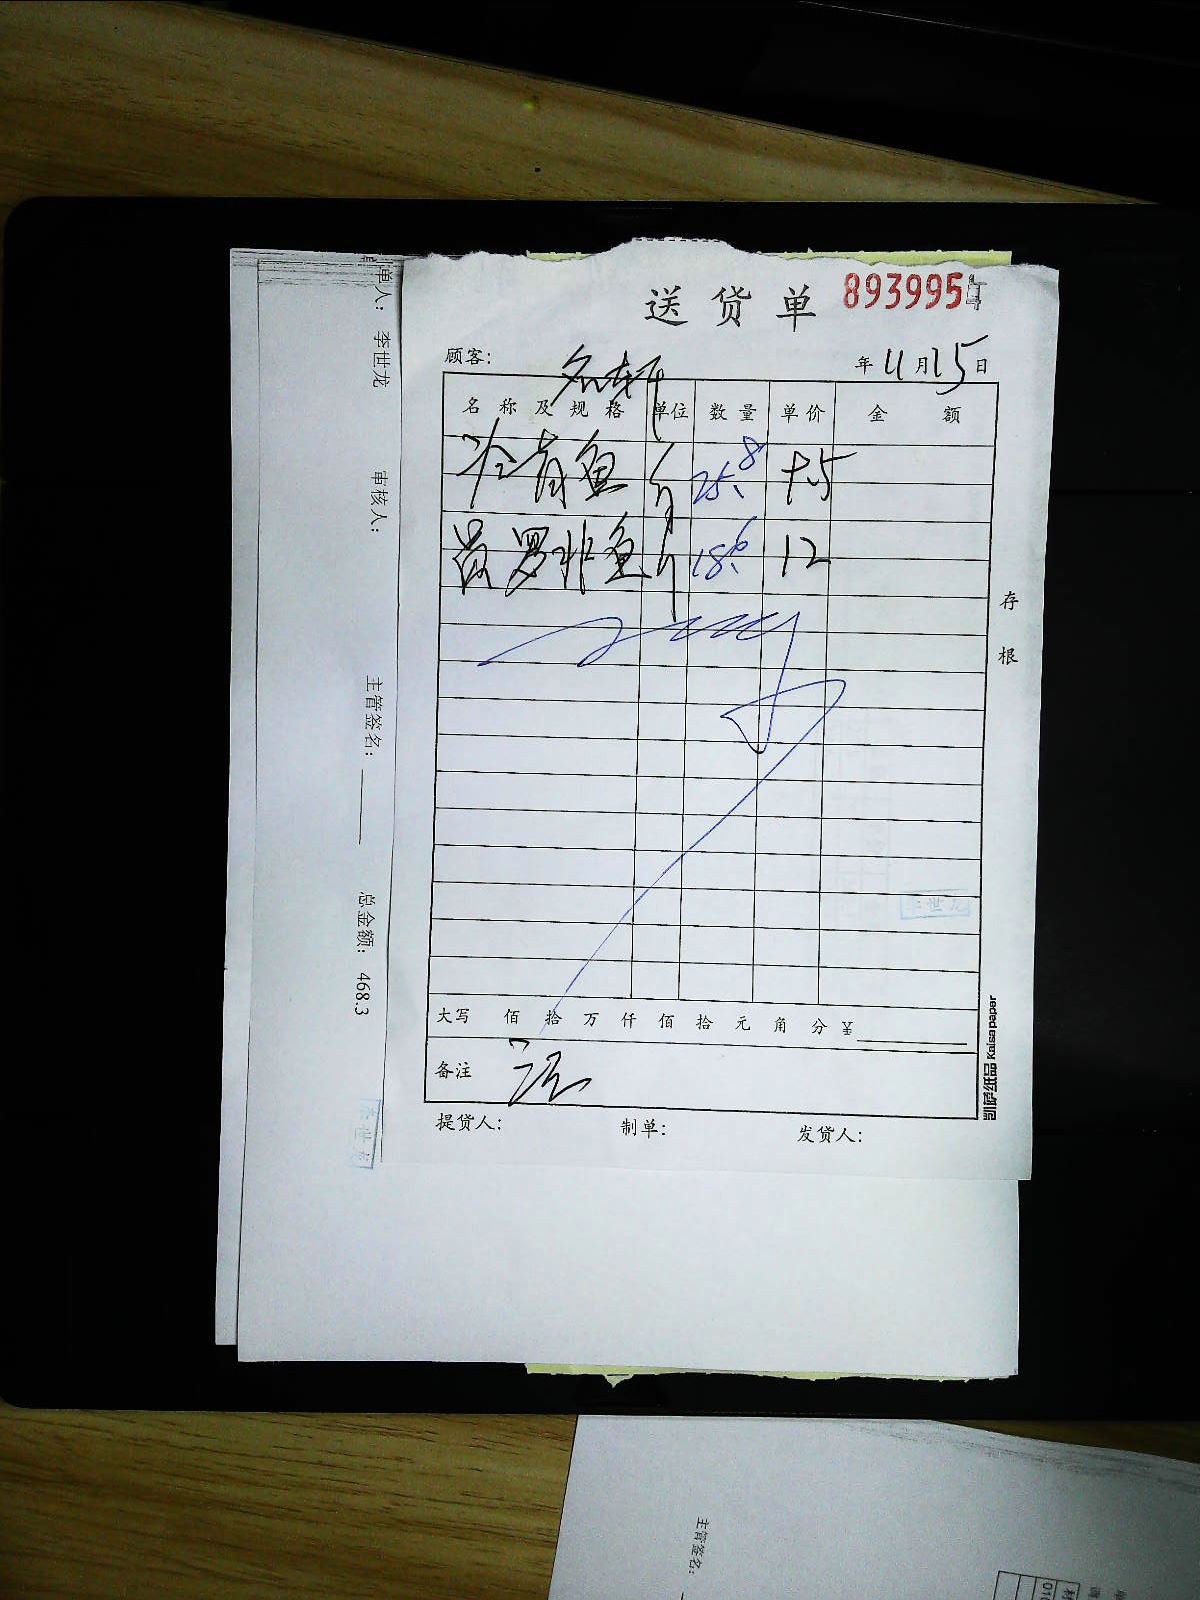 送货单 8939954
顾客： 名轩
年 11月15日
名称及规格 单位 数量 单价 金额
冷青鱼 斤 25.8 7.5
罗非鱼 斤 18.6 12
存根
大写 佰 拾 万 仟 佰 拾 元 角 分 ¥
备注
提货人： 制单： 发货人：
凯萨纸品 Kaisa paper
李世龙
单人： 李世龙 审核人： 主管签名： 总金额： 468.3
李世龙
主管签名：